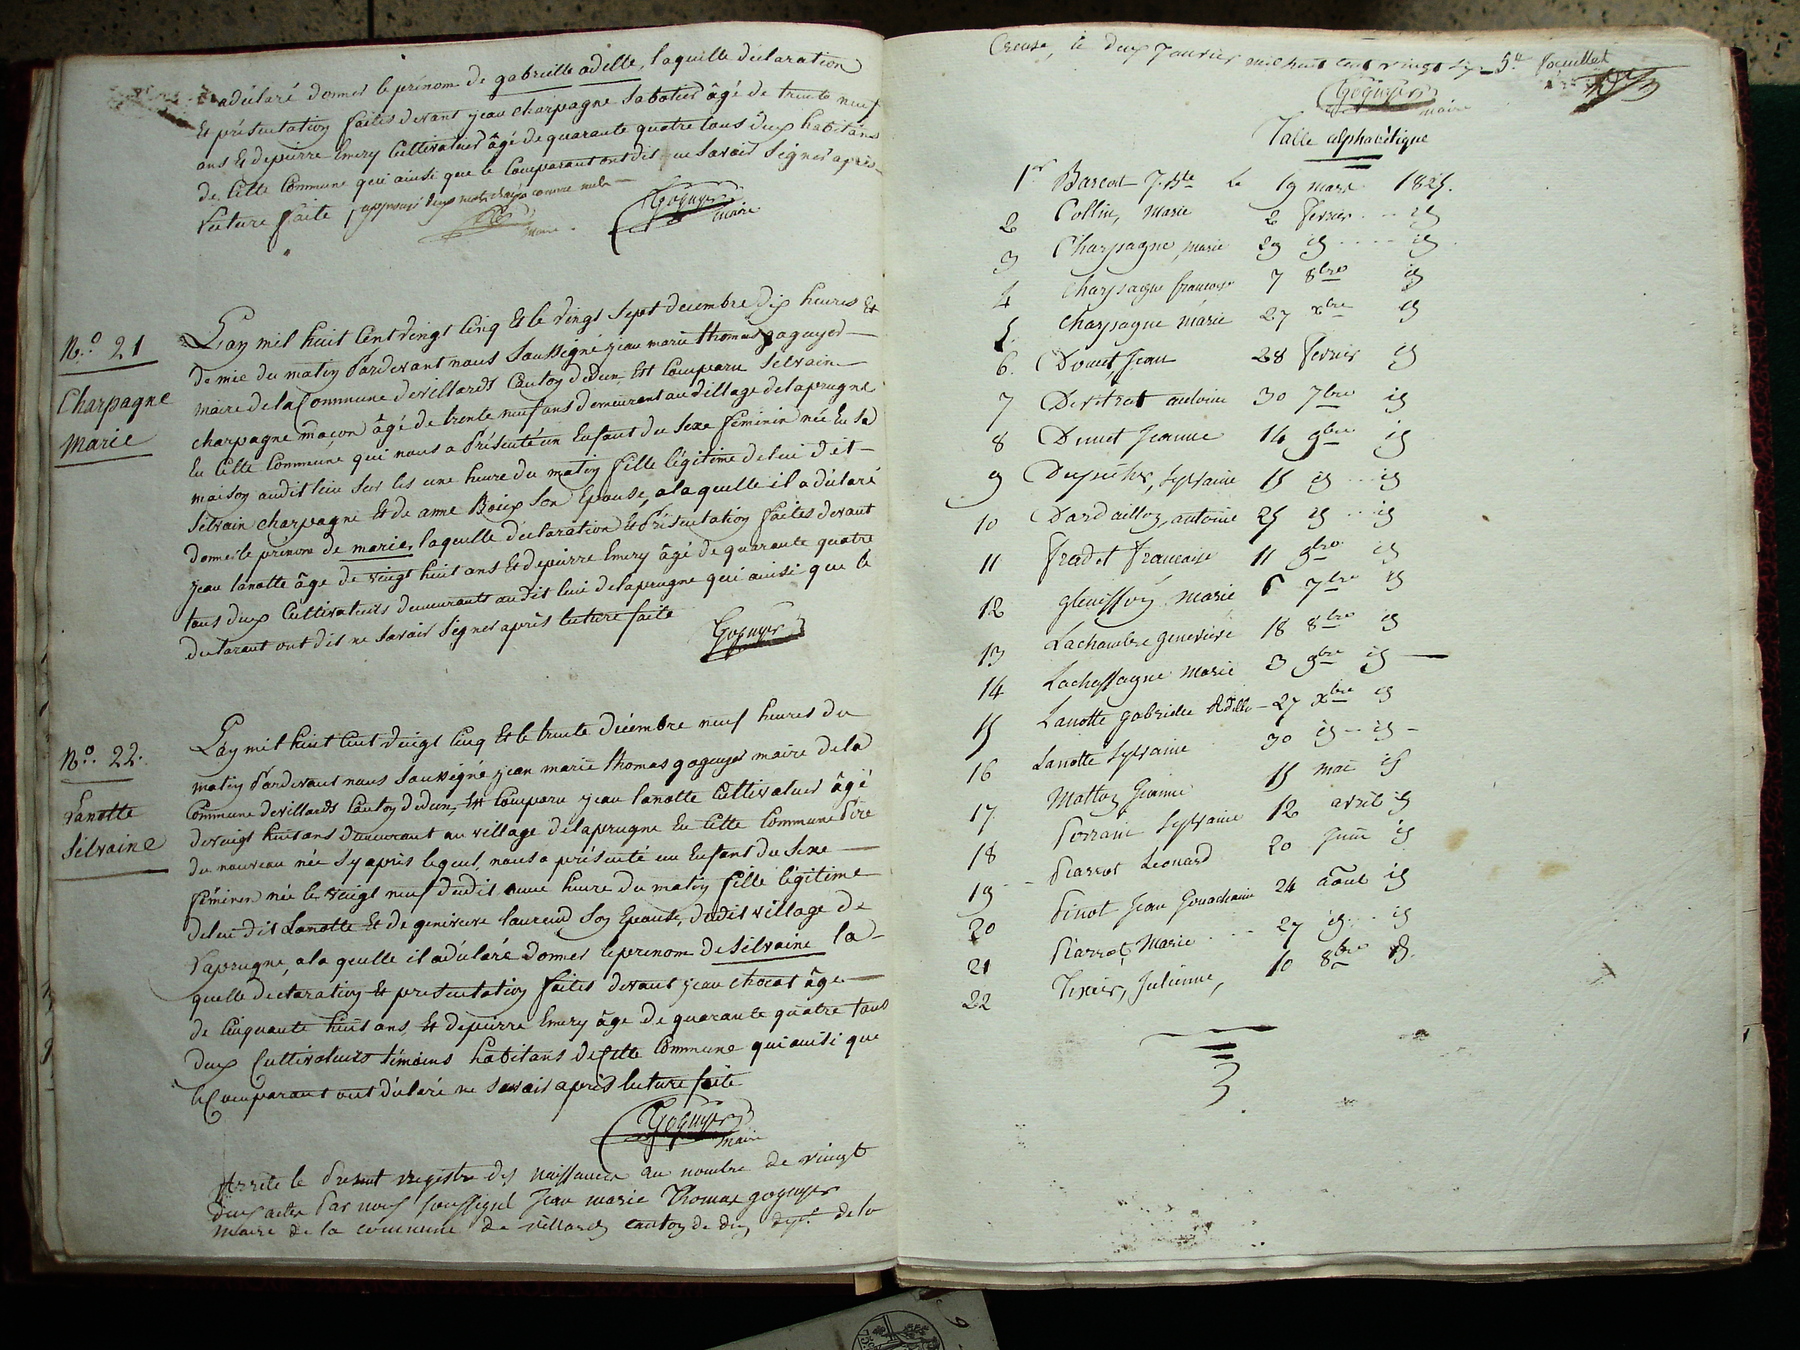 a déclaré donner le prénom de gabrielle adelle, laquelle déclaration
Et présentation faites devant jean charpagne Sabotier âgé de trente neuf
ans Et depierre Emery Cultivateur âgé de quarante quatre tous deux habitans
de Cette Commune qui ainsi que le Comparant ont dit ne Savoir Signer après
lecture faite approuvé deux mots rayés comme nuls
Goguyer
maire
maire
N.º 21
Charpagne
Marie
L'an mil huit Cent vingt Cinq Et le vingt Sept decembre dix heures Et
demie du matin Pardevant nous Soussigné jean marie thomas gaguyer
maire dela Commune devillards Canton dedun, Est Comparu Sélvain
charpagne maçon âgé de trente neuf ans demeurant au village delaprugne
En Cette Commune qui nous a Présenté un Enfant du Sexe féminin née En Sa
maison audit lieu Sur les une heure du matin fille légitime delui dit
Sélvain charpagne Et de anne Boux Son Epouse, alaquelle il a déclaré
donner le prénom de marie, laquelle déclaration Et Présentation faites devant
jean lanotte âge de vingt huit ans Et depierre Emery âgé de quarante quatre
tous deux Cultivateurs demeurants au dit lieu delaprugne qui ainsi que le
declarant ont dit ne Savoir Signer après lecture faite
Goguyer
N.º 22.
Lanotte
Sélvaine
L'an mil huit Cent vingt Cinq Et le trente décembre neuf heures du
matin Pardevant nous Soussigné jean marie thomas goguyer maire dela
Commune devillards Canton dedun, Est Comparu jean lanotte Cultivateur âgé
devingt huit ans demeurant au village delaprugne En Cette Commune Pére
du nouveau née Sy après lequel nous a présenté un Enfant du Sexe
féminin née le vingt neuf dudit onne heure du matin fille légitime
delui dit Lanotte Et de genevieve laurend Son Epouse, dudit village de
Laprugne, alaquelle il a déclaré donner le prenom de Sélvaine la
quelle declaration Et presentation faites devant jean chocat âge
de Cinquante huit ans Et depierre Emery âge de quarante quatre tous
deux Cultivateurs témoins habitans de Cette Commune qui ainsi que
le Comparant ont déclaré ne Savoir après lecture faite
Goguyer
maire
Arrêté le Présent registre des naissances au nombre de vingt
deux actes Par nous Soussigné Jean marie Thomas goguyer
maire de la commune de villards canton de dun, dept. de la
Creuse, le deux Janvier mil huit cent vingt six 5.e feuillet
Goguyer
maire
Table alphabétique
1er Barcat J. Bte Le 19 mars 1825.
2 Collin, Marie 2 fevrier id
3 Charpagne, marie 29 id id
4 Charpagne francoise 7 8bre id
5. Charpagne marie 27 xbre id
6. Douet, Jean 28 fevrier id
7 antoine 30 7bre id
8 Jeanne 14 9bre id
9 Sylvaine 15 id id
10 Dardaillon, antoine 25 id id
11 fradet francoise 11 9bre id
12 glenisson marie 6 7bre id
13 Lachambre genevieve 18 8bre id
14 Lachassagne Marie 3 9bre id
15 Lanotte gabrielle Adelle 27 xbre id
16 Lanotte Sylvaine 30 id id
17 Mathon Jeanne 15 mai id
18 Perrain Sylvaine 12 avril id
19 Piarrot Leonard 20 Juin id
20 Pinot Jean 24 août id
21 Piarrot, Marie 27 id id
22 Texier, Julienne, 10 8bre id.